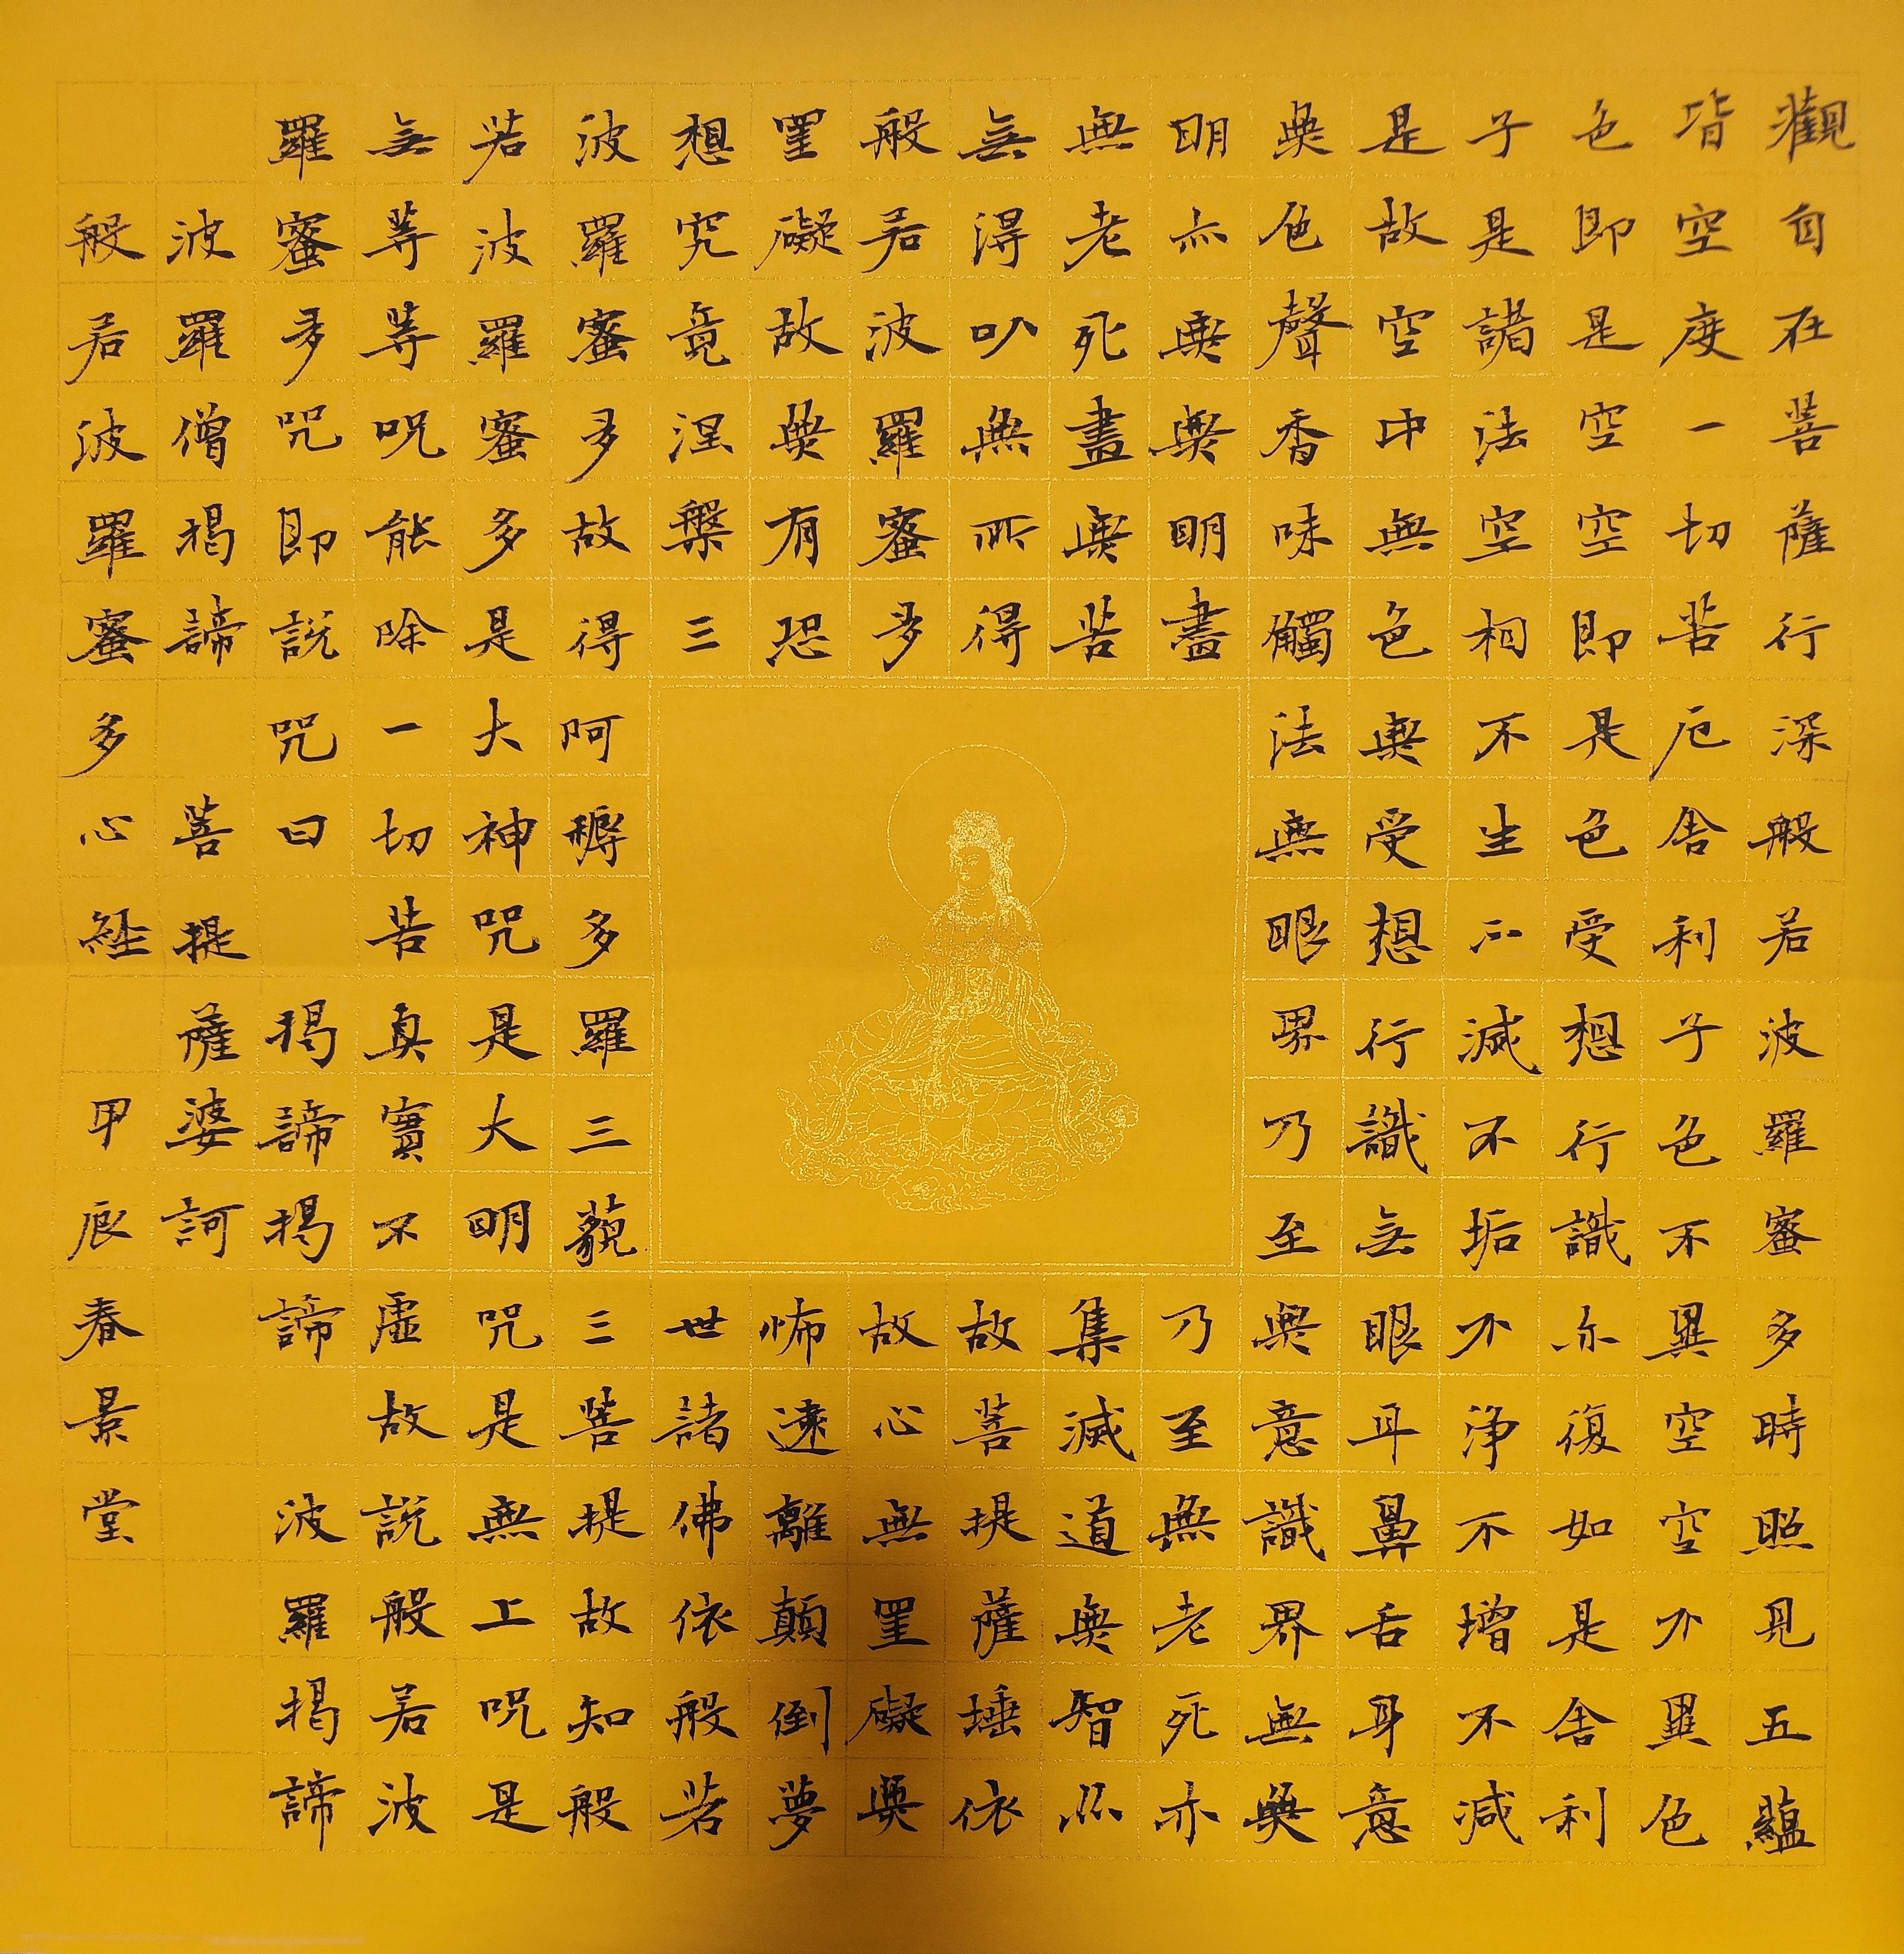 觀自在菩薩行深般若波羅蜜多時照見五蘊
皆空度一切苦厄舍利子色不異空空不異色
色即是空空即是色受想行識亦復如是舍利
子是諸法空相不生不滅不垢不淨不增不減
是故空中無色無受想行識無眼耳鼻舌身意
無色聲香味觸法無眼界乃至無意識界無無
明亦無無明盡乃至無老死亦
無老死盡無苦集滅道無智亦
無得以無所得故菩提薩埵依
般若波羅蜜多故心無罣礙無
罣礙故無有恐怖遠離顛倒夢
想究竟涅槃三世諸佛依般若
波羅蜜多故得阿耨多羅三藐三菩提故知般
若波羅蜜多是大神咒是大明咒是無上咒是
無等等咒能除一切苦真實不虛故說般若波
羅蜜多咒即說咒曰 揭諦揭諦 波羅揭諦
波羅僧揭諦 菩提薩婆訶
般若波羅蜜多心經 甲辰春景堂